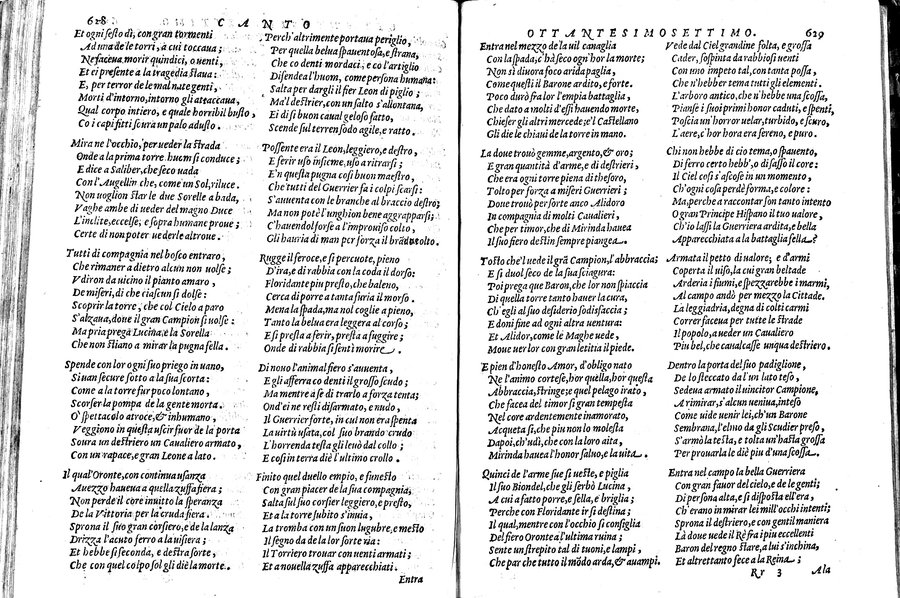 628 CANTO
Et ogni sesto dì, con gran tormenti
Ad una de le torri, à cui toccaua;
Ne facea morir quindici, o uenti,
Et ei presente a la tragedia staua:
E, per terror de le mal nate genti,
Morti d'intorno, intorno gli attaccaua,
Qual corpo intiero, e quale horribil busto,
Co i capi fitti soura un palo adusto.
Mira ne l'occhio, per ueder la strada
Onde a la prima torre huom si conduce;
E dice a Saliber, che seco uada
Con l'Augellin che, come un Sol, riluce.
Non uoglion star le due Sorelle a bada,
Vaghe ambe di ueder del magno Duce
L'inclite, eccelse, e sopra humane proue;
Certe di non poter uederle altroue.
Tutti di compagnia nel bosco entraro,
Che rimaner a dietro alcun non uolse;
Vdiron da uicino il pianto amaro,
De miseri, di che ciascun si dolse:
Scoprir la torre, che col Cielo a paro
S'alzaua, doue il gran Campion si uolse:
Ma pria pregà Lucina, e la Sorella
Che non stiano a mirar la pugna fella.
Spende con lor ogni suo priego in uano,
Si uan secure sotto a la sua scorta:
Come a la torre fur poco lontano,
Scorser la pompa de la gente morta.
O' spettacolo atroce, & inhumano,
Veggiono in questa uscir fuor de la porta
Soura un destriero un Caualiero armato,
Con un rapace, e gran Leone a lato.
Il qual'Oronte, con continua usanza
Auezzo haueua a quella zuffa fiera;
Non perde il core inuitto la speranza
De la Vittoria per la cruda fiera.
Sprona il suo gran corsiero, e de la lanza
Drizza l'acuto ferro a la uisiera;
Et hebbe sì seconda, e destra sorte,
Che con quel colpo sol gli diè la morte.
Perch'altrimente portaua periglio,
Per quella belua spauentosa, e strana,
Che co denti mordaci, e co l'artiglio
Difendea l'huom, come persona humana:
Salta per dargli il fier Leon di piglio;
Ma'l destrier, con un salto s'allontana,
Ei di su buon caual geloso fatto,
Scende sul terren sodo agile, e ratto.
Possente era il Leon, leggiero, e destro,
E ferir uso insieme, uso a ritrarsi;
E'n questa pugna così buon maestro,
Che'tutti del Guerrier fa i colpi scarsi:
S'auuenta con le branche al braccio destro;
Ma non potè l'unghion bene aggrapparsi;
C'hauendol forse a l'improuiso colto,
Gli hauria di man per forza il brãdo tolto.
Rugge il feroce, e si percuote, pieno
D'ira, e di rabbia con la coda il dorso:
Floridante piu presto, che baleno,
Cerca di porre a tanta furia il morso.
Mena la spada, ma nol coglie a pieno,
Tanto la belua era leggera al corso;
E si presta a ferir, presta a fuggire;
Onde di rabbia si sentì morire.
Di nouo l'animal fiero s'auuenta,
E gli afferra co denti il grosso scudo;
Ma mentre a se di trarlo a forza tenta;
Ond'ei ne resti disarmato, e nudo,
Il Guerrier forte, in cui non era spenta
La uirtù usata, col suo brando crudo
L'horrenda testa gli leuò dal collo;
E così in terra diè l'ultimo crollo.
Finito quel duello empio, e funesto
Con gran piacer de la sua compagnia,
Salta sul suo corsier leggiero, e presto,
Et a la torre subito s'inuia,
La tromba con un suon lugubre, e mesto
Il segno da de la lor sorte ria:
Il Torriero trouar con uenti armati;
Et a nouella zuffa apparecchiati.
Entra
OTTANTESIMOSETTIMO. 629
Entra nel mezzo de la uil canaglia
Con la spada, c'hà seco ogn'hor la morte;
Non sì diuora foco arida paglia,
Come questi il Barone ardito, e forte.
Poco durò fra lor l'empia battaglia,
Che dato a molti d'essi hauendo morte,
Chieser gli altri mercede; e'l Castellano
Gli die le chiaui de la torre in mano.
La doue trouò gemme, argento, & oro;
E gran quantità d'arme, e di destrieri,
Che era ogni torre piena di thesoro,
Tolto per forza a miseri Guerrieri;
Doue trouò per sorte anco Alidoro
In compagnia di molti Caualieri,
Che per timor, che di Mirinda hauea
Il suo fiero destin sempre piangea.
Tosto che l'uede il grã Campion, l'abbraccia;
E si duol seco de la sua sciagura:
Poi prega que Baron, che lor non spiaccia
Di quella torre tanto hauer la cura,
Ch'egli al suo desiderio sodisfaccia;
E doni fine ad ogni altra uentura:
Et Alidor, come le Maghe uede,
Moue uer lor con gran letitia il piede.
E pien d'honesto Amor, d'obligo nato
Ne l'animo cortese, hor quella, hor questa
Abbraccia, stringe; e quel pelago irato,
Che facea del timor sì gran tempesta
Nel core ardentemente inamorato,
Acqueta sì, che piu non lo molesta
Dapoi, ch'udì, che con la loro aita,
Mirinda hauea l'honor saluo, e la uita.
Quinci de l'arme sue si ueste, e piglia
Il suo Biondel, che gli serbò Lucina,
A cui a fatto porre, e sella, e briglia;
Perche con Floridante ir si destina;
Il qual, mentre con l'occhio si consiglia
Del fiero Oronte a l'ultima ruina;
Sente un strepito tal di tuoni, e lampi,
Che par che tutto il mõdo arda, & auampi.
Vede dal Ciel grandine folta, e grossa
Cader, sospinta da rabbiosi uenti
Con uno impeto tal, con tanta possa,
Che n'hebber tema tutti gli elementi.
L'arboro antico, che n'hebbe una scossa,
Pianse i suoi primi honor caduti, e spenti,
Poscia un'horror uelar, turbido, e scuro,
L'aere, c'hor hora era sereno, e puro.
Chi non hebbe di cio tema, o spauento,
Di ferro certo hebb', o di sasso il core:
Il Ciel così s'ascose in un momento,
Ch'ogni cosa perdè forma, e colore:
Ma, perche a raccontar son tanto intento
O gran Principe Hispano il tuo ualore,
Ch'io lassi la Guerriera ardita, e bella
Apparecchiata a la battaglia fella?
Armata il petto di ualore; e d'armi
Coperta il uiso, la cui gran beltade
Arderia i fiumi, e spezzarebbe i marmi,
Al campo andò per mezzo la Cittade.
La leggiadria, degna di colti carmi
Correr facea per tutte le strade
Il popolo, a ueder un Caualiero
Piu bel, che caualcasse unqua destriero.
Dentro la porta del suo padiglione,
De lo steccato dal'un lato teso,
Sedeua armato il uincitor Campione,
A rimirar, s'alcun ueniua, inteso
Come uide uenir lei, ch'un Barone
Sembraua, l'elmo da gli Scudier preso,
S'armò la testa, e tolta un'hasta grossa
Per prouarla le diè piu d'una scossa.
Entra nel campo la bella Guerriera
Con gran fauor del cielo, e de le genti;
Di persona alta, e sì disposta ell'era,
Ch'erano in mirar lei mill'occhi intenti;
Sprona il destriero, e con gentil maniera
Là doue uede il Rè fra i piu eccellenti
Baron del regno stare, a lui s'inchina,
Et altrettanto fece a la Reina;
Rr 3 Ala